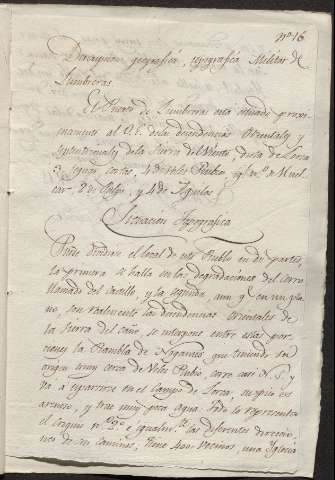 nº 16
Descripcion geografica, topografica Militar de
Lumbreras
El Puerto de Lumbreras está situado proxi-
mamente al O.E. de las descendencias Orientales y
Septentrionales de la Sierra del Viento, dista de Lorca
leguas cortas, 4 de Velez Rubio, de Huel-
car, 2 de Pulpi, y 4 de Aguilas
Situacion Topografica
Puede dividirse el local de este Pueblo en dos partes,
la primera se halla en las degradaciones del Cerro
llamado del Castillo, y la segunda, aun q.e en un pla-
no, son realmente las descendencias orientales de
la Sierra del Caño, se interpone entre estas por-
ciones la Rambla de Nogalte, que teniendo su
origen muy cerca de Velez Rubio, corre casi N.S. y
va á esparcirse en el Campo de Lorca, su piso es
arenoso, y trae muy poca agua. Todo lo representa
el Croquis nº 2º e igualm.te las diferentes direccio-
nes de sus caminos, tiene 400 vecinos, una Iglesia